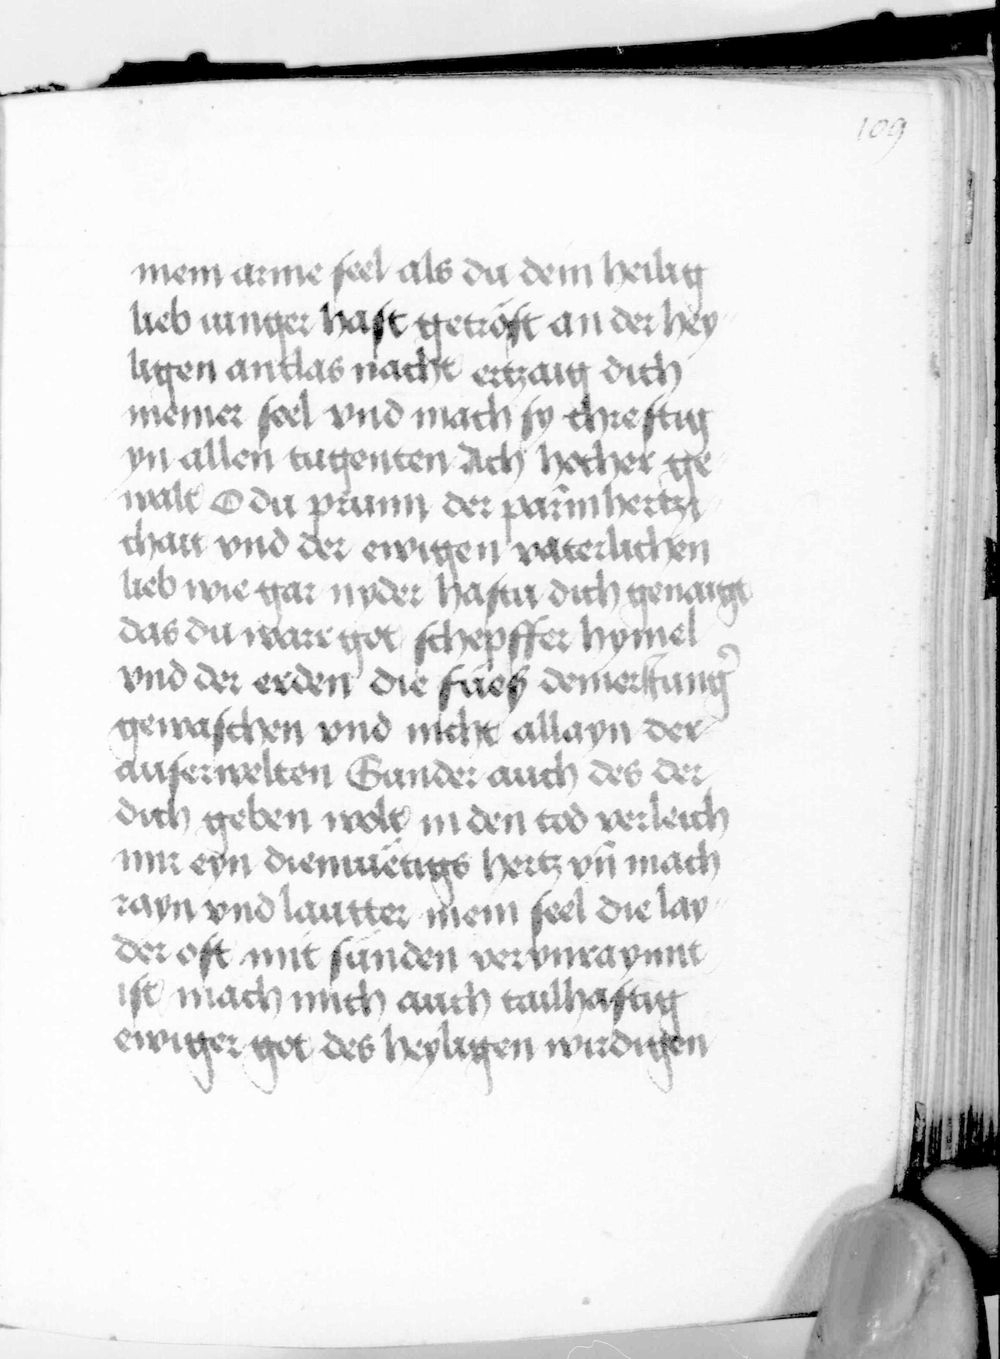 109
mein arme seel als du dein heilig
lieb iunger hast getröst an der hey
ligen antlas nacht ertzaig dich
meiner seel vnd mach sy chrefftig
yn allen tugenten Ach hocher ge
walt O du prunn der parm̄hertzi
chait vnd der ewigen vaterlichen
lieb wie gar nyder hastu dich genaigt
das du ware got schepffer hymel
vnd der erden die füeß deiner
gewaschen vnd nicht allayn der
auserwelten Sunder auch des der
dich geben wolt in den tod verleich
mir eyn diemuëtigs hertz vn̄ mach
rayn vnd lautter mein seel die lay
der oft mit sunden vervnraynnt
ist mach mich auch tailhafftig
ewiger got des heyligen wirdigen